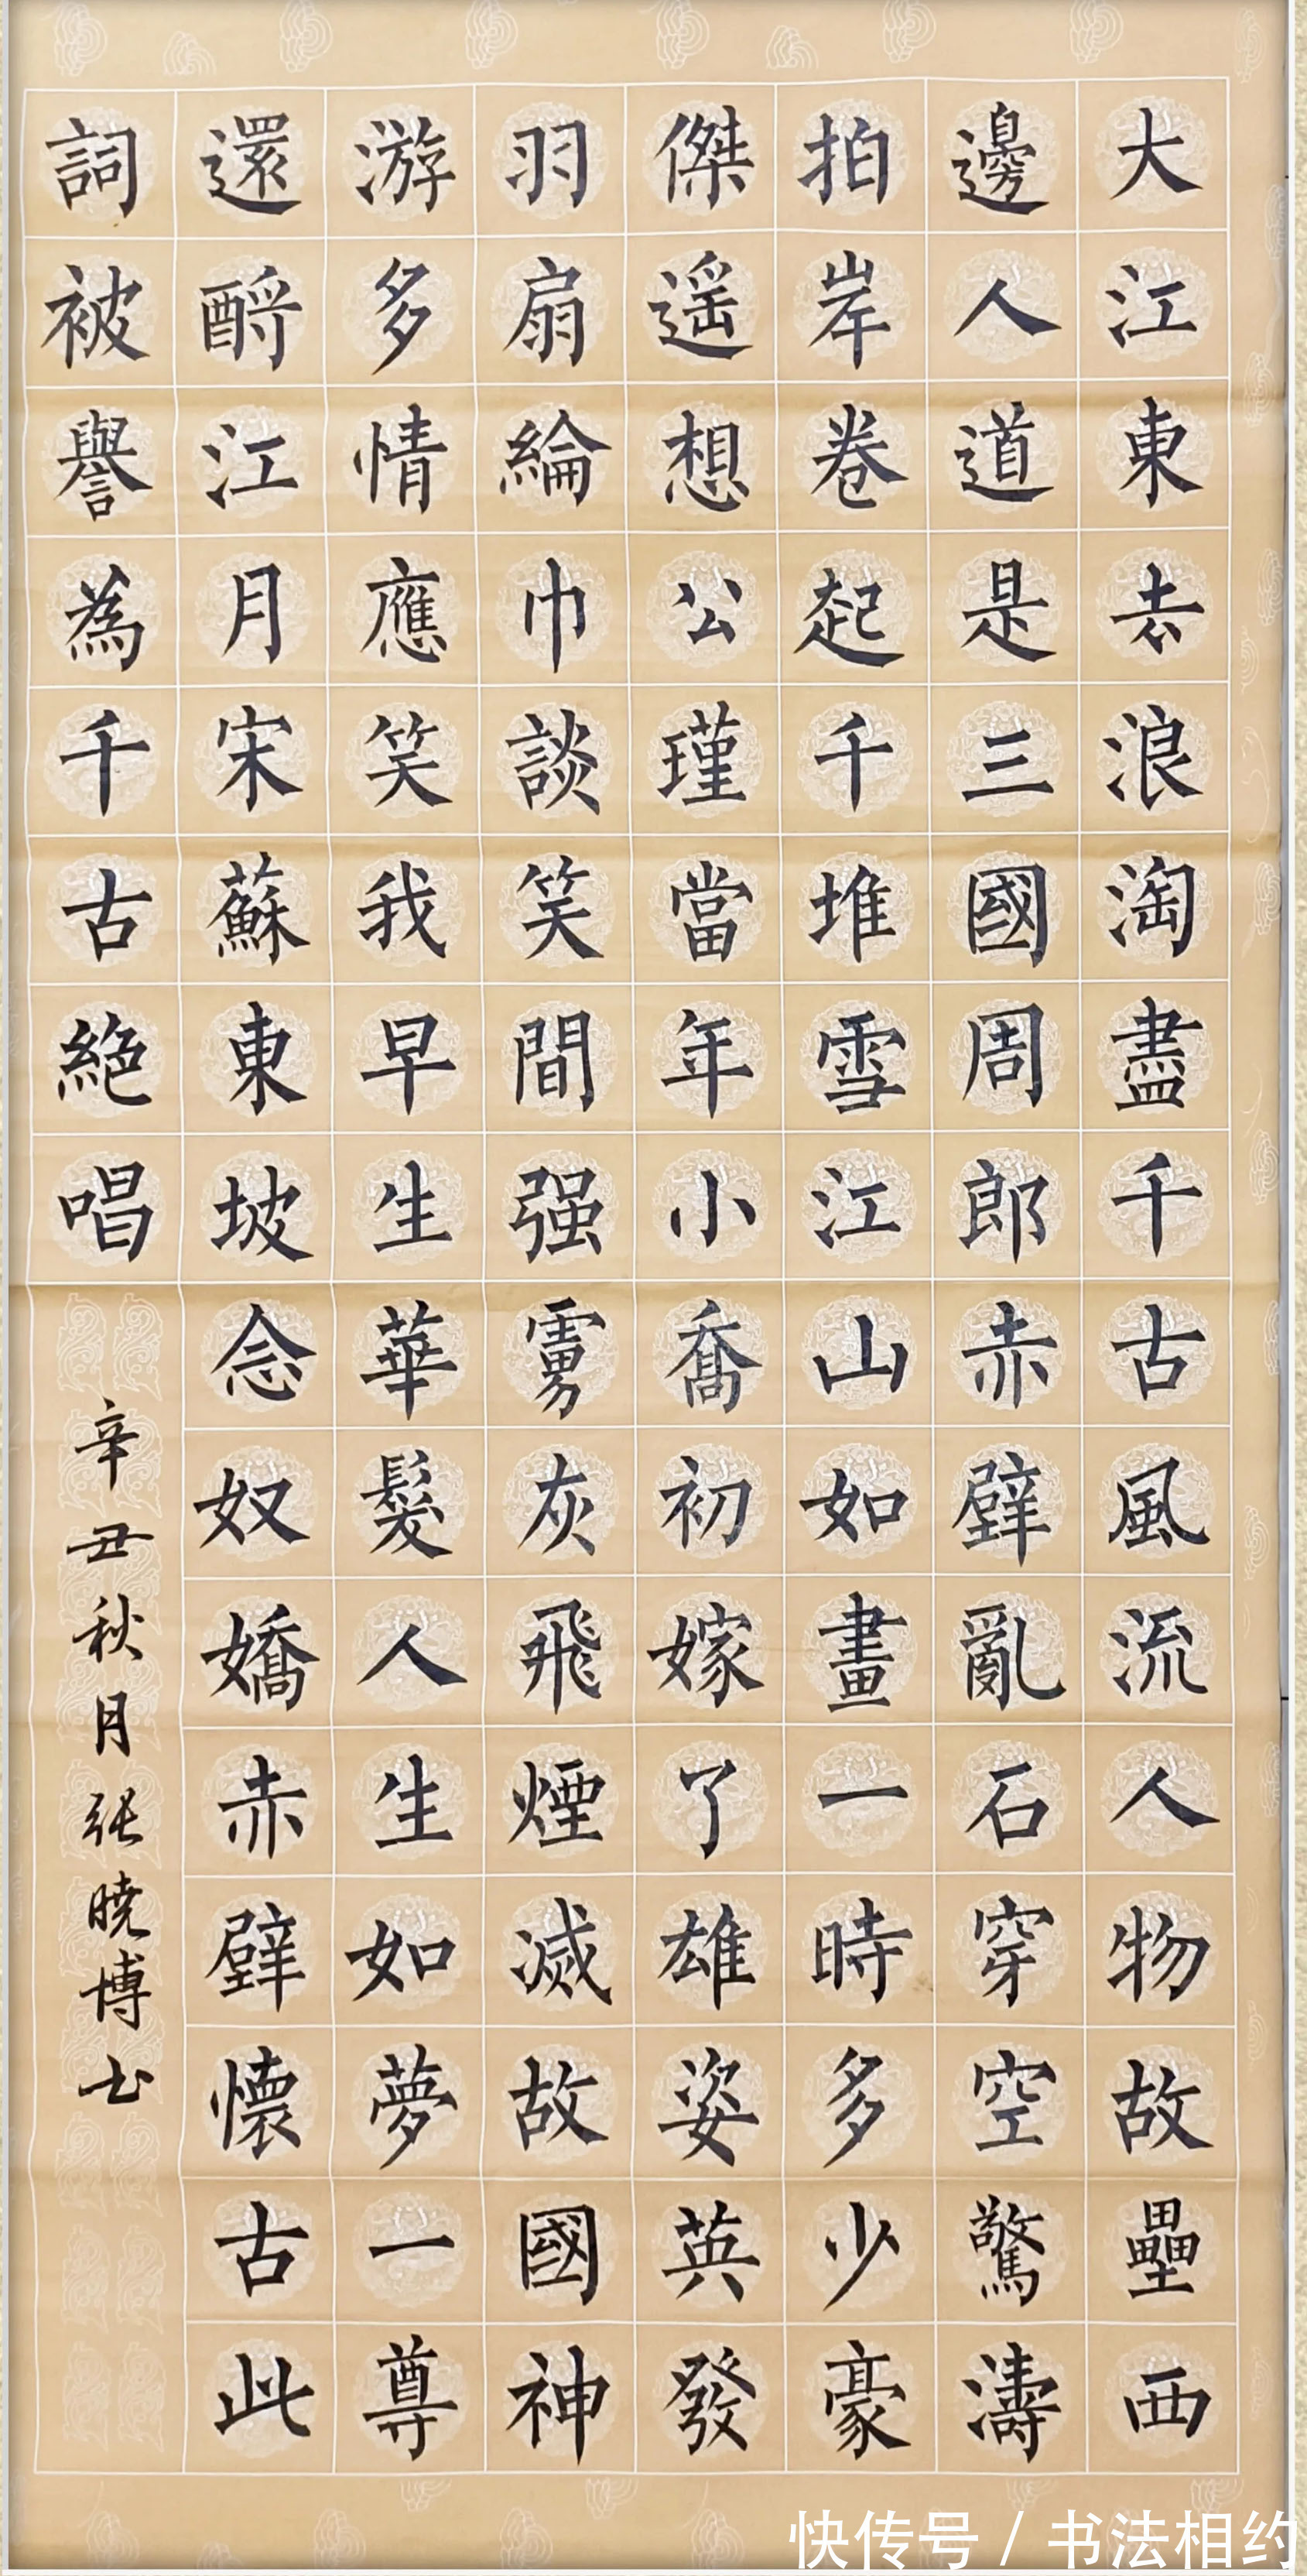 大江東去浪淘盡千古風流人物故壘西
邊人道是三國周郎赤壁亂石穿空驚濤
拍岸卷起千堆雪江山如畫一時多少豪
傑遥想公瑾當年小喬初嫁了雄姿英發
羽扇綸巾談笑間强虜灰飛煙滅故國神
游多情應笑我早生華髮人生如夢一尊
還酹江月宋蘇東坡念奴嬌赤壁懷古此
詞被譽為千古絕唱
辛丑秋月張曉博书
快传号 / 书法相约